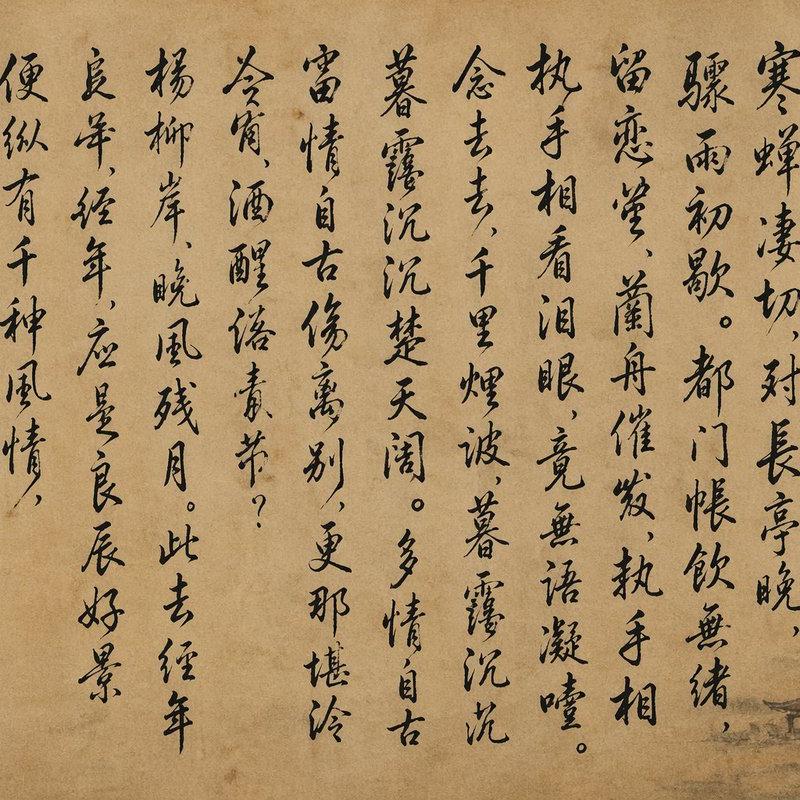 寒蝉凄切,対長亭晚,
驟雨初歇。都门帳飲無緒,
留恋、蘭舟催发,执手相
执手相看泪眼,竟無語凝噎。
念去去,千里煙波,暮靄沉沉
暮靄沉沉楚天阔。多情自古
情自古傷离别,更那堪冷
今宵,酒醒?
楊柳岸、晚風残月。此去經年
經年,应是良辰好景
便纵有千种風情,